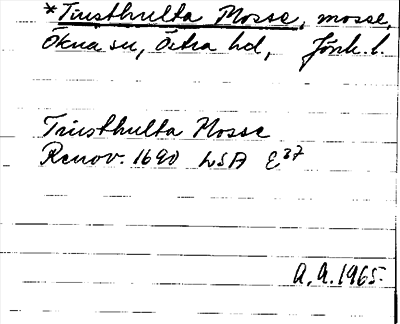 *Trusthulta Mosse, mosse,
Ökna sn, Östra hd, Jönk. l.
Trusthulta Mosse
Renov. 1690 LSA E37
A.A. 1965